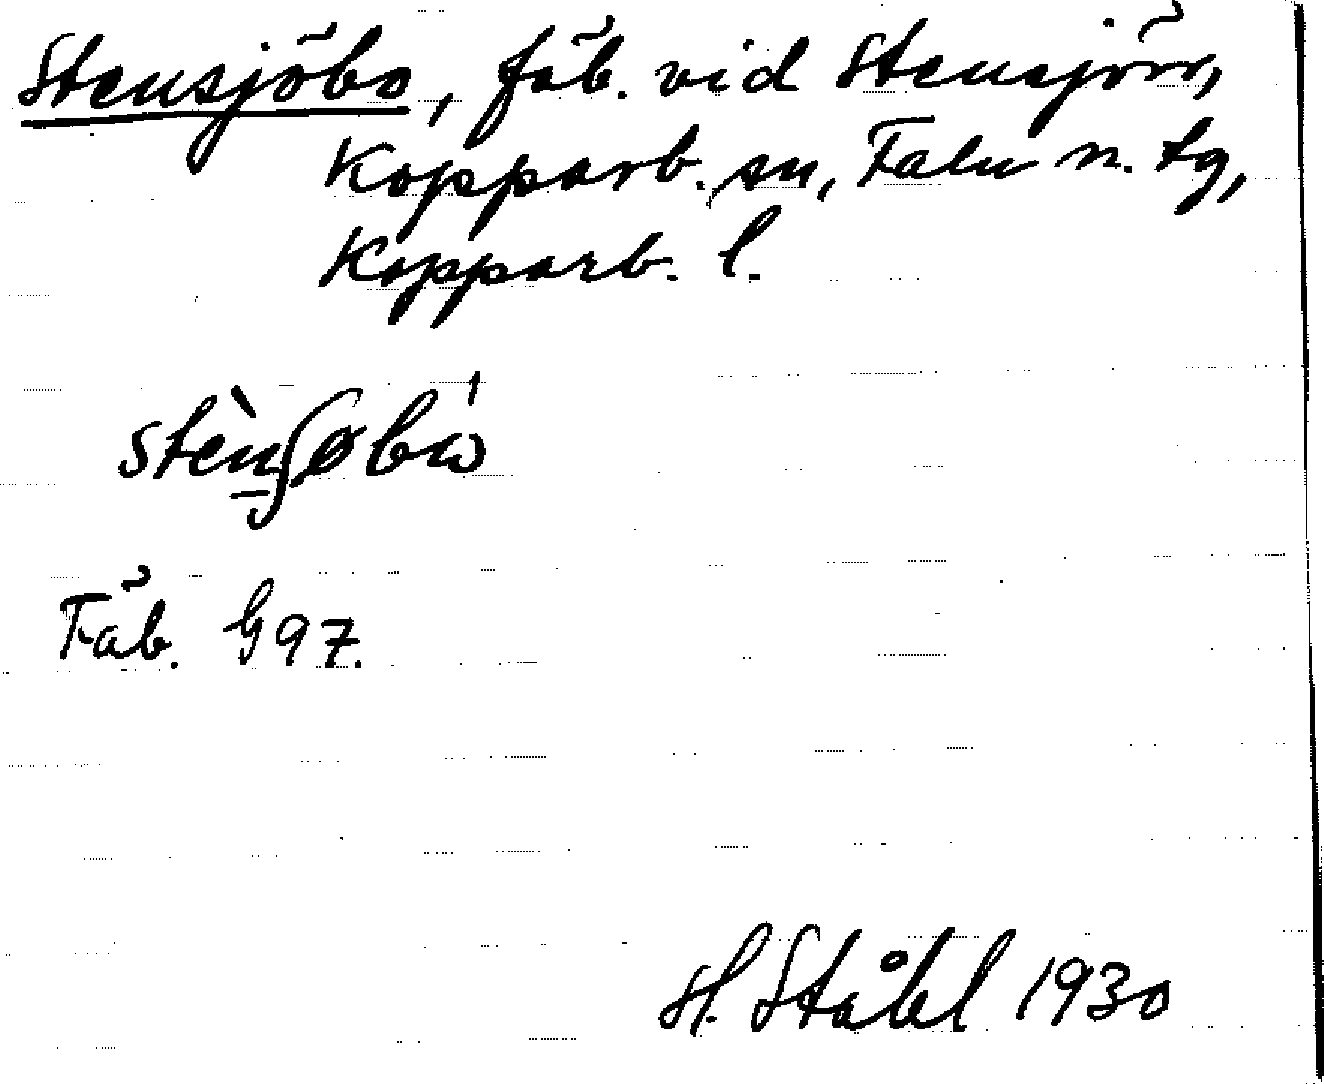 Stensjöbo, fäb. vid Stensjön,
Kopparb. sn, Falu n. tg,
Kopparb. l.
Fäb. G97.
H. Ståhl 1930